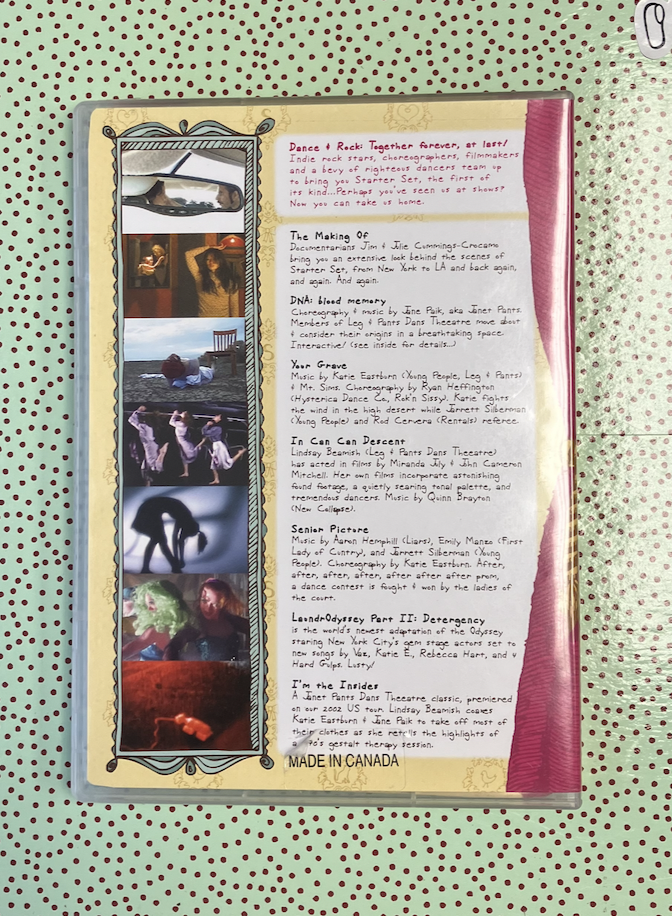 Dance & Rock: Together forever, at last!
Indie rock stars, choreographers, filmmakers
and a bevy of righteous dancers team up
to bring you Starter Set, the first of
its kind...Perhaps you've seen us at shows?
Now you can take us home.
The Making Of
Documentarians Jim & Julie Cummings-Crocamo
bring you an extensive look behind the scenes of
Starter Set, from New York to LA and back again,
and again. And again.
DNA: blood memory
Choreography & music by Jane Paik, aka Janet Pants.
Members of Leg & Pants Dans Theeatre move about
& consider their origins in a breathtaking space.
Interactive! (see inside for details...)
Your Grave
Music by Katie Eastburn (Young People, Leg & Pants)
& Mt. Sims. Choreography by Ryan Heffington
(Hysterica Dance Co., Rok'n Sissy). Katie fights
the wind in the high desert while Jarrett Silberman
(Young People) and Rod Cervera (Rentals) referee.
In Can Can Descent
Lindsay Beamish (Leg & Pants Dans Theeatre)
has acted in films by Miranda July & John Cameron
Mitchell. Her own films incorporate astonishing
found footage, a quietly searing tonal palette, and
tremendous dancers. Music by Quinn Brayton
(New Collapse).
Senior Picture
Music by Aaron Hemphill (Liars), Emily Manzo (First
Lady of Contry), and Jarrett Silberman (Young
People). Choreography by Katie Eastburn. After,
after, after, after, after after after prom,
a dance contest is fought & won by the ladies of
the court.
LaundrOdyssey Part II: Detergency
is the world's newest adaptation of the Odyssey
staring New York City's gem stage actors set to
new songs by Vaz, Katie E., Rebecca Hart, and 4
Hard Gulps. Lusty!
I'm the Insides
A Janet Pants Dans Theeatre classic, premiered
on our 2002 US tour. Lindsay Beamish coaxes
Katie Eastburn & Jane Paik to take off most of
their clothes as she retells the highlights of
a '90's gestalt therapy session.
MADE IN CANADA